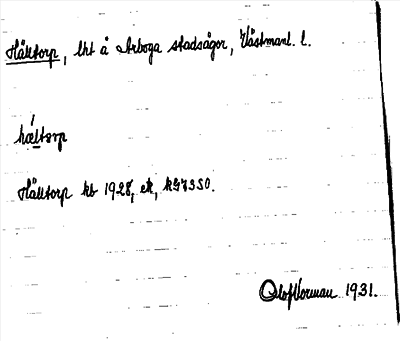 Hålltorp, lht å Arboga stadsägor, Västmanl. l.
hæltorp
Hålltorp kb 1928, ek,
Olof Norman 1931.